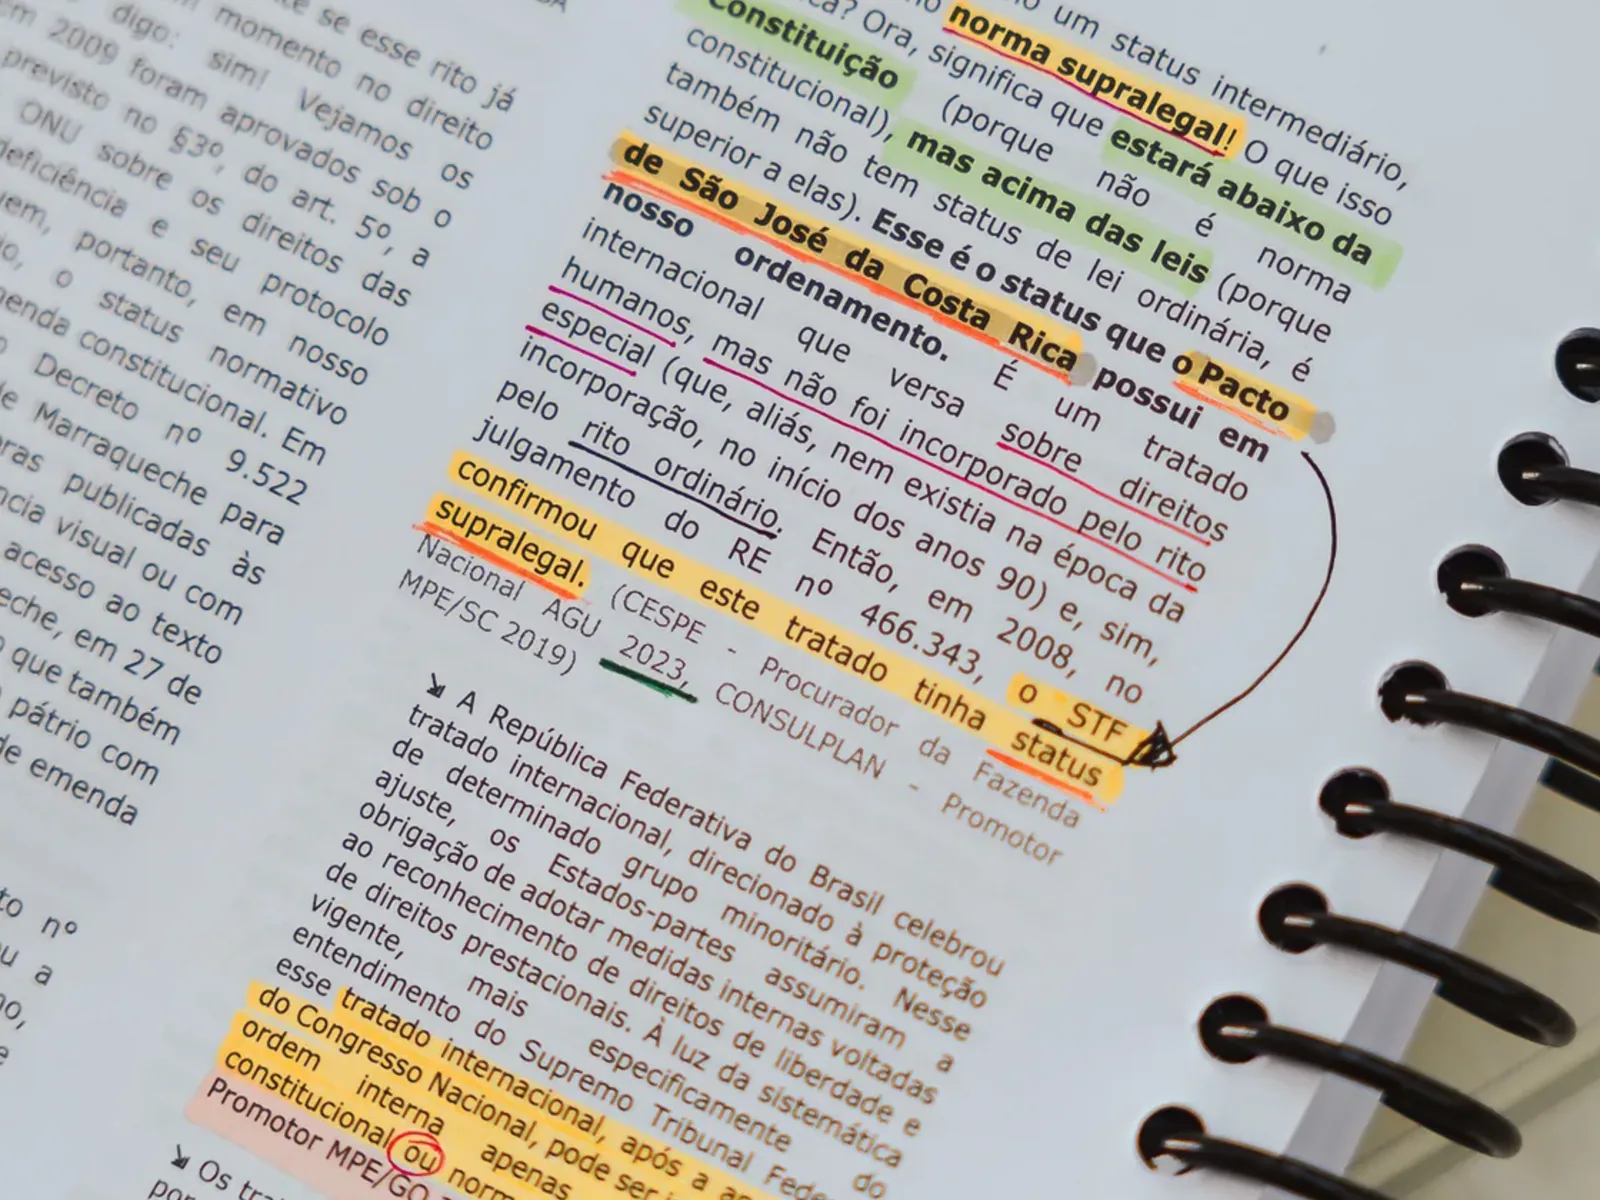 se esse rito já
momento no direito
digo: sim! Vejamos os
em 2009 foram aprovados sob o
previsto no §3º, do art. 5º, a
ONU sobre os direitos das
deficiência e seu protocolo
portanto, em nosso
o status normativo
emenda constitucional. Em
Decreto nº 9.522
de Marraqueche para
obras publicadas às
visual ou com
acesso ao texto
em 27 de
que também
pátrio com
de emenda
nº
a
um status intermediário,
norma supralegal! O que isso
Ora, significa que estará abaixo da
Constituição (porque não é norma
constitucional), mas acima das leis (porque
também não tem status de lei ordinária, é
superior a elas). Esse é o status que o Pacto
de São José da Costa Rica possui em
nosso ordenamento. É um tratado
internacional que versa sobre direitos
humanos, mas não foi incorporado pelo rito
especial (que, aliás, nem existia na época da
incorporação, no início dos anos 90) e, sim,
pelo rito ordinário. Então, em 2008, no
julgamento do RE nº 466.343, o STF
confirmou que este tratado tinha status
supralegal. (CESPE - Procurador da Fazenda
Nacional AGU 2023, CONSULPLAN - Promotor
MPE/SC 2019)
↘ A República Federativa do Brasil celebrou
tratado internacional, direcionado à proteção
de determinado grupo minoritário. Nesse
ajuste, os Estados-partes assumiram a
obrigação de adotar medidas internas voltadas
ao reconhecimento de direitos de liberdade e
de direitos prestacionais. À luz da sistemática
vigente, mais especificamente do
entendimento do Supremo Tribunal
esse tratado internacional, após a
do Congresso Nacional, pode ser
ordem interna apenas
constitucional ou
Promotor MPE/GO
↘ Os